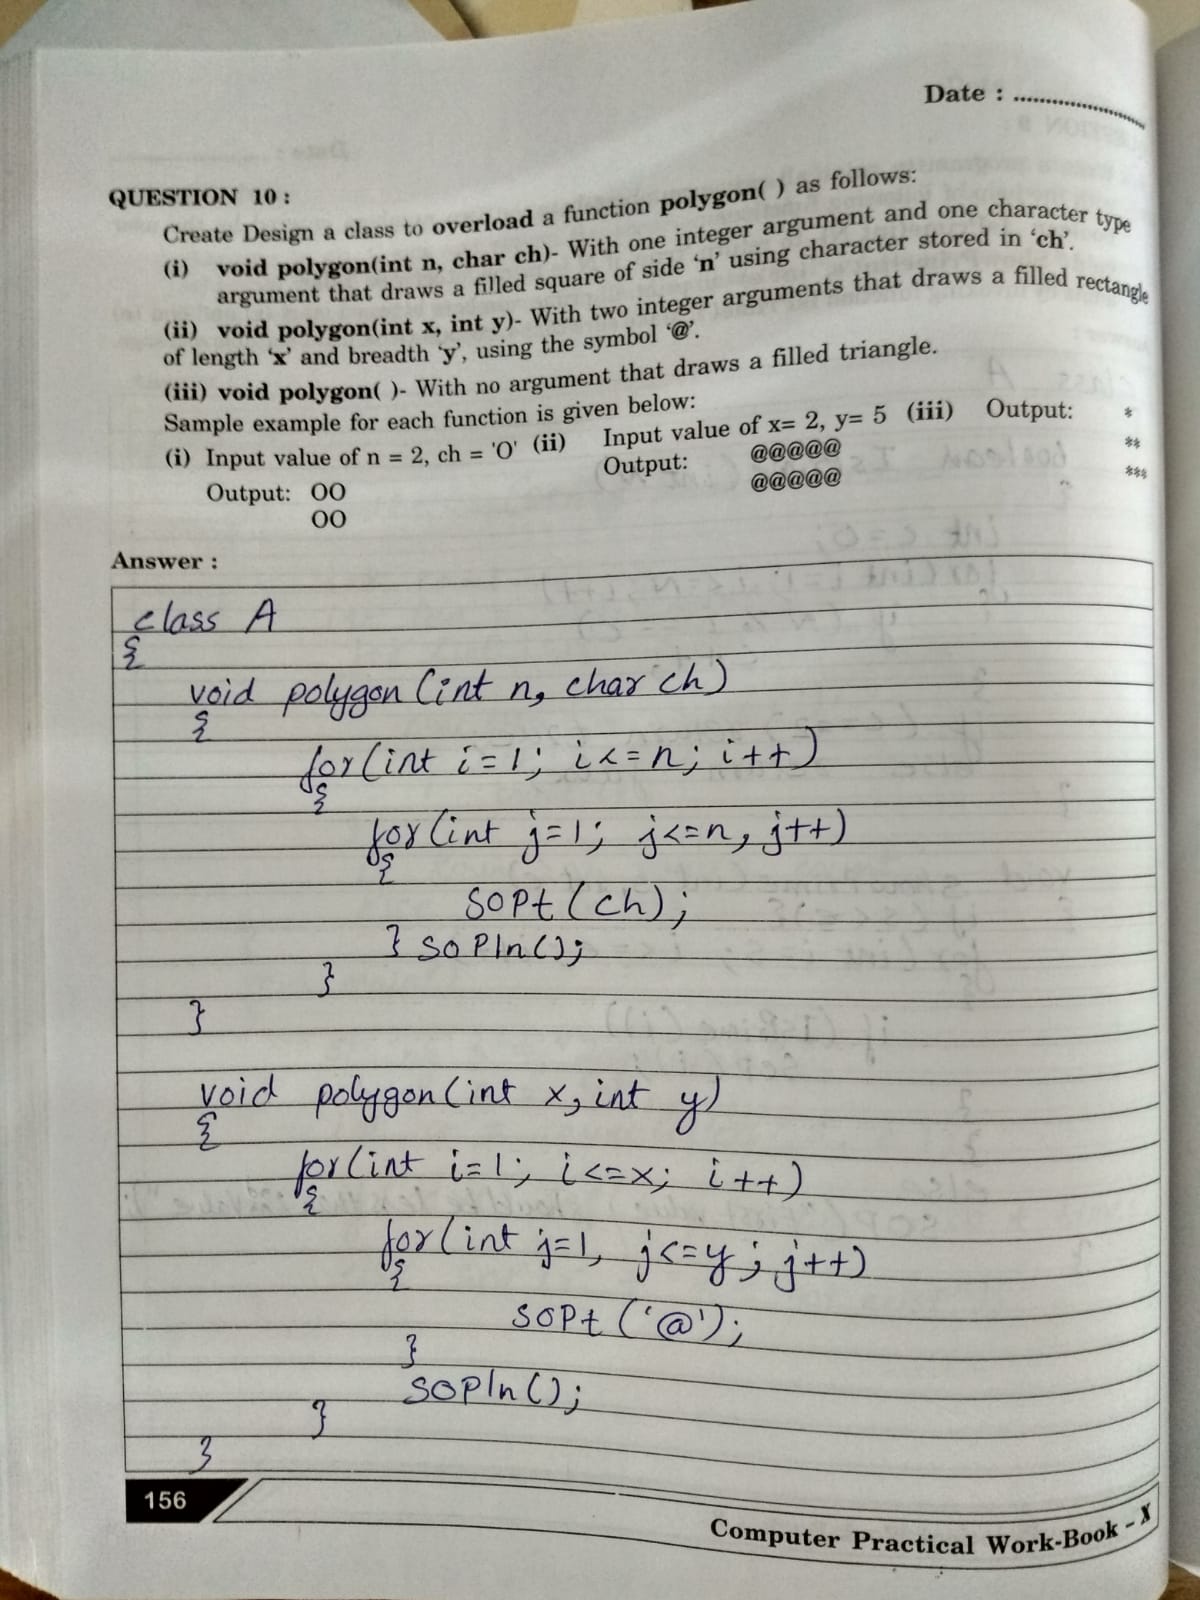 Date : ........................
QUESTION 10 :
Create Design a class to overload a function polygon( ) as follows:
(i) void polygon(int n, char ch)- With one integer argument and one character type
argument that draws a filled square of side 'n' using character stored in 'ch'.
(ii) void polygon(int x, int y)- With two integer arguments that draws a filled rectangle
of length 'x' and breadth 'y', using the symbol '@'.
(iii) void polygon( )- With no argument that draws a filled triangle.
Sample example for each function is given below:
(i) Input value of n = 2, ch = 'O' (ii) Input value of x= 2, y= 5 (iii) Output: *
Output: @@@@@ **
Output: OO @@@@@ ***
OO
Answer :
class A
{
void polygon (int n, char ch)
{
for (int i=1; i<=n; i++)
{
for (int j=1; j<=n, j++)
{
SOPt (ch);
} SOPln();
}
}
void polygon (int x, int y)
{
for (int i=1; i<=x; i++)
{
for (int j=1, j<=y; j++)
{
SOPt ('@');
}
SOPln ();
}
}
156
Computer Practical Work-Book - X